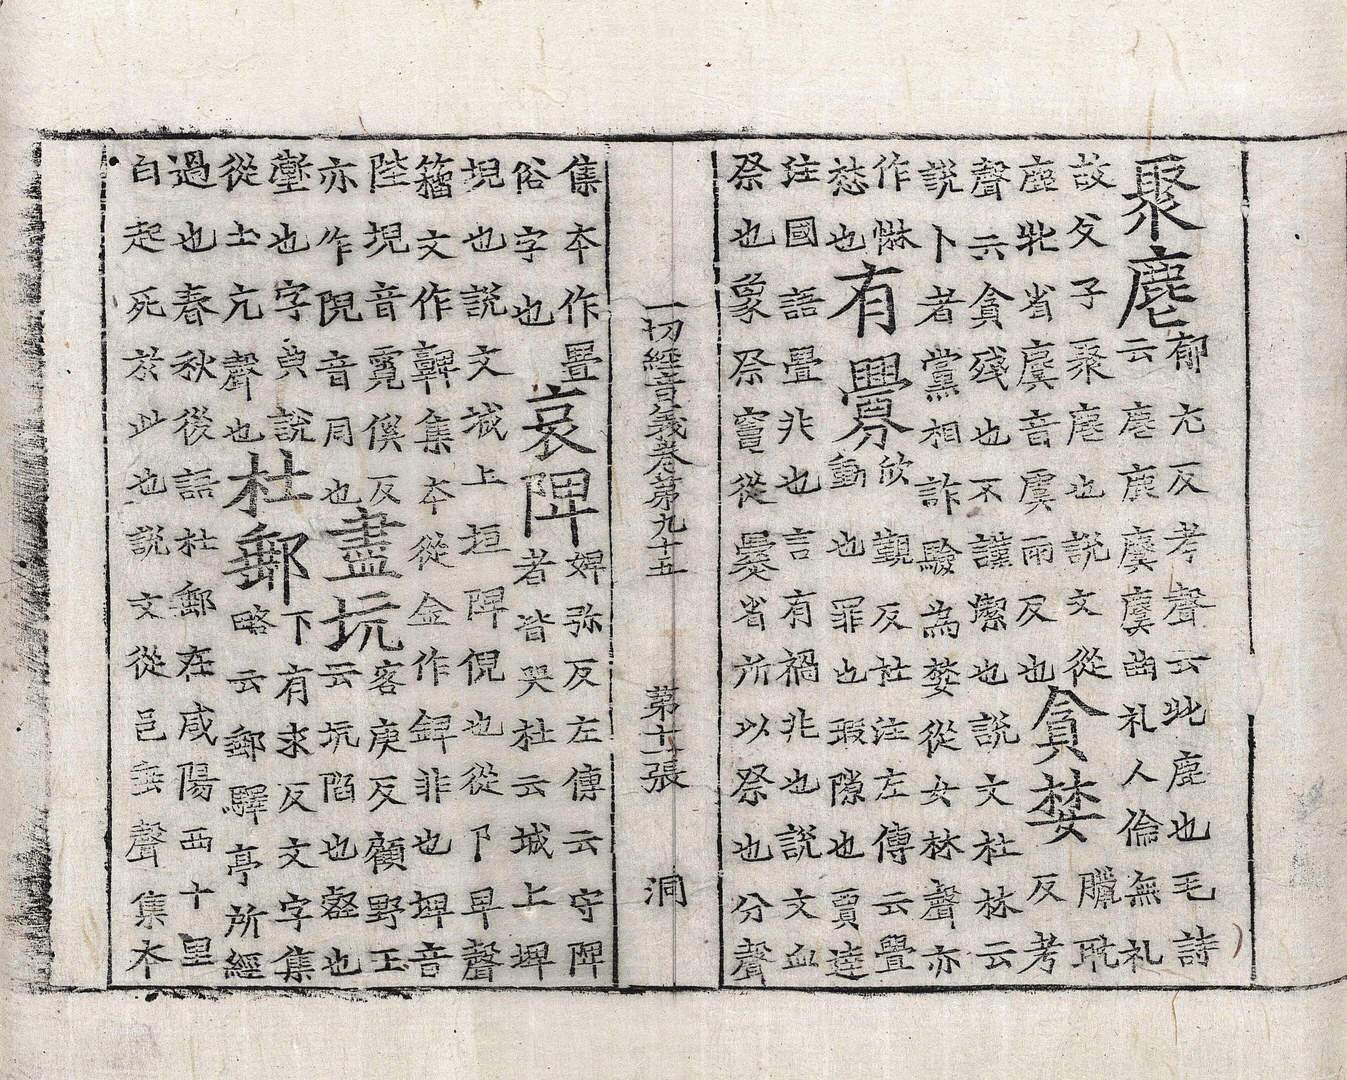 聚麀郁尤反考聲云牝鹿也毛詩
云麀鹿麌麌曲礼人倫無礼
故父子聚麀也說文從
鹿牝省麌音虞雨反也
貪婪臘耽
反考
聲云貪殘也不謹潔也說文杜林云
說卜者黨相詐驗為婪從女林聲亦
作惏
愁也
有釁欣覲反杜注左傳云舋
動也罪也瑕隙也賈逵
注國語舋非也言有禍非也說文血
祭也象祭竈從爨省所以祭也分聲
一切經音義卷第九十五 第十一張 洞
集本作舋
俗字也
哀陴婢弥反左傳云守陴
者皆哭杜云城上埤
堄也說文城上垣陴倪也從卩卑聲
籀文作𩫫集本從金作錍非也埤音
陛堄音霓傒反
亦作音同也
盡坑客庚反顧野王
云坑陷也壑也
壍也字典說
從土亢聲也
杜郵下有求反文字集
略云郵驛亭所經
過也春秋後語杜郵在咸陽西十里
白起死於此也說文從邑垂聲集本